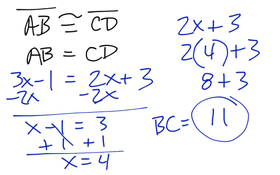 AB ≅ CD
AB = CD
3x-1 = 2x+3
-2x -2x
x-1 = 3
+1 +1
x=4
2x+3
2(4)+3
8+3
BC= 11